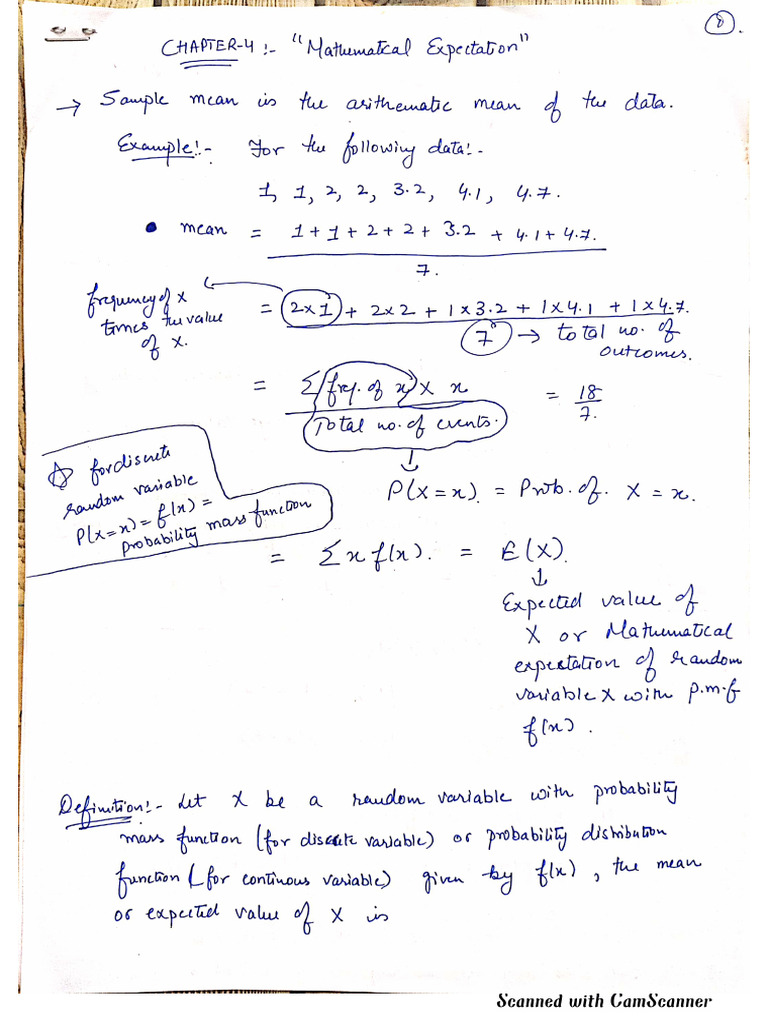 8.
CHAPTER-4 :- "Mathematical Expectation"
→ Sample mean is the arithematic mean of the data.
Example!- For the following data!-
1, 1, 2, 2, 3.2, 4.1, 4.7.
• mean = 1+1+2+2+3.2+4.1+4.7.
7.
frequency of x
times the value
of x.
= 2×1 + 2×2 + 1×3.2 + 1×4.1 + 1×4.7.
7 → total no. of
outcomes.
= Σ(freq. of x) × x = 18
Total no. of events. 7.
P(X=x). = Prob. of. X = x.
☆ for discrete
random variable
P(X=x) = f(x) =
probability mass function
= Σ x f(x). = E(X).
Expected value of
X or Mathematical
expectation of random
variable X with p.m.f
f(x).
Definition!- Let X be a random variable with probability
mass function (for discrete variable) or probability distribution
function (for continous variable) given by f(x), the mean
or expected value of X is
Scanned with CamScanner